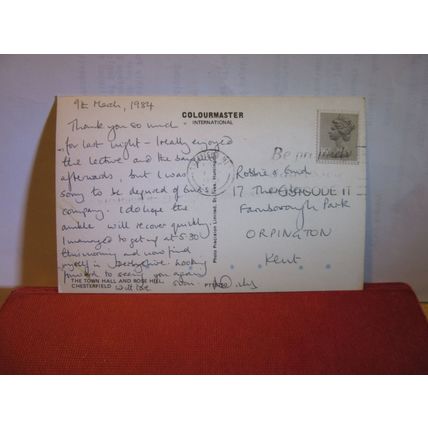 9th March, 1984
COLOURMASTER
INTERNATIONAL
Thank you so much
for last night - I really enjoyed
the lecture and the banquet
afterwards, but I was
sorry to be deprived of Gud's
company. I do hope the
ankle will recover quickly.
I managed to get up at 5.30
this morning and now find
myself in Derbyshire. Looking
forward to seeing you again
soon.
THE TOWN HALL AND ROSE HILL,
CHESTERFIELD
With love
Photo Precision Limited, St. Ives, Huntingdon
Be properly
Robbie & Gud
17
Farnborough Park
ORPINGTON
Kent